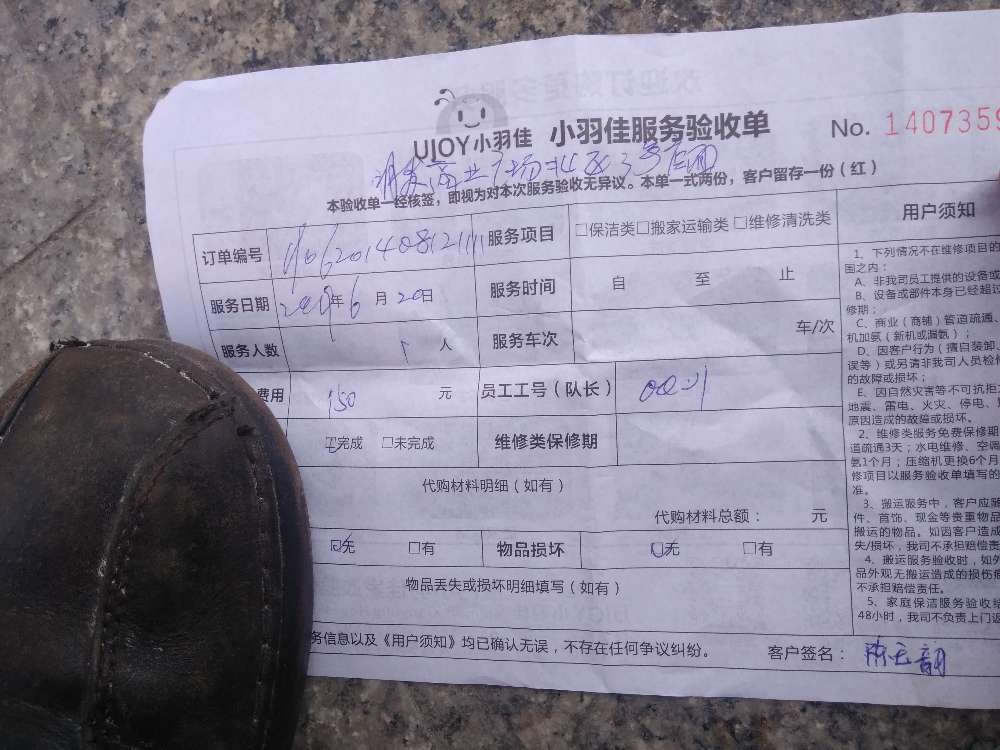 UJOY小羽佳 小羽佳服务验收单 No. 1407359
本验收单一经核签，即视为对本次服务验收无异议。本单一式两份，客户留存一份（红）
订单编号 服务项目 □保洁类□搬家运输类 □维修清洗类
服务日期 年 6 月 20日 服务时间 自 至 止
服务人数 人 服务车次 车/次
费用 150 元 员工工号（队长）
完成 □未完成 维修类保修期
代购材料明细（如有）
代购材料总额： 元
无 □有 物品损坏 无 □有
物品丢失或损坏明细填写（如有）
务信息以及《用户须知》均已确认无误，不存在任何争议纠纷。 客户签名：
用户须知
1、下列情况不在维修项目的
围之内：
A、非我司员工提供的设备或
B、设备或部件本身已经超过
修期；
C、商业（商铺）管道疏通、
机加氨（新机或漏氨）；
D、因客户行为（擅自装卸、
误等）或另请非我司人员检修
的故障或损坏；
E、因自然灾害等不可抗拒
地震、雷电、火灾、停电、
原因造成的故障或损坏。
2、维修类服务免费保修期
道疏通3天；水电维修、空调
氨1个月；压缩机更换6个月
修项目以服务验收单填写的
准。
3、搬运服务中，客户应
件、首饰、现金等贵重物品
搬运的物品。如因客户造成
失/损坏，我司不承担赔偿责
4、搬运服务验收时，如外
品外观无搬运造成的损伤
不承担赔偿责任。
5、家庭保洁服务验收结
48小时，我司不负责上门返